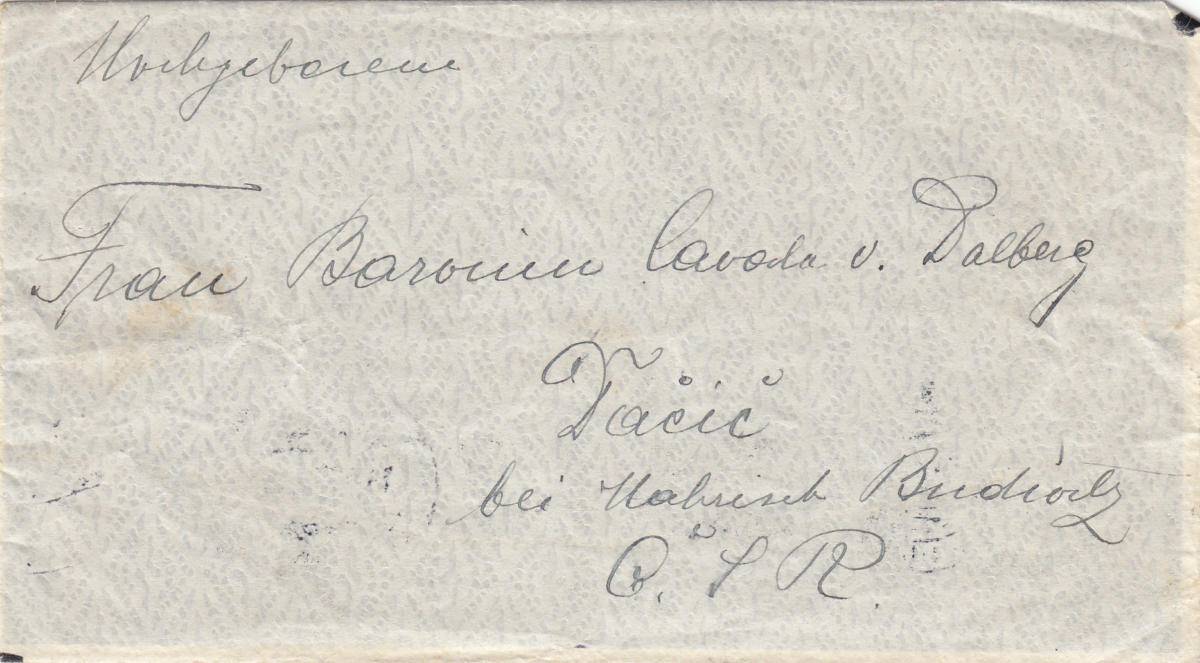 Hochgeborene
Frau Baronin v. Dalberg
Dačič
bei Mährisch Budwitz
Č. S R.